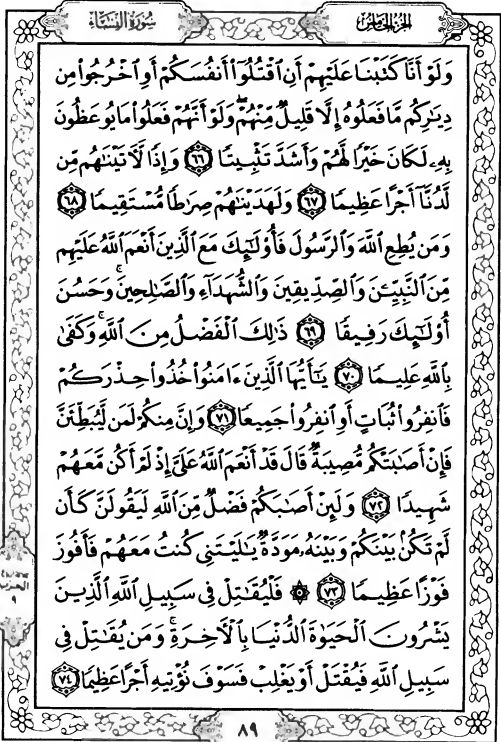 سُورَةُ النِّسَاءِ
الجزء الخامس
وَلَوْ أَنَّا كَتَبْنَا عَلَيْهِمْ أَنِ ٱقْتُلُوٓا۟ أَنفُسَكُمْ أَوِ ٱخْرُجُوا۟ مِن
دِيَـٰرِكُم مَّا فَعَلُوهُ إِلَّا قَلِيلٌ مِّنْهُمْ ۖ وَلَوْ أَنَّهُمْ فَعَلُوا۟ مَا يُوعَظُونَ
بِهِۦ لَكَانَ خَيْرًا لَّهُمْ وَأَشَدَّ تَثْبِيتًا ٦٦ وَإِذًا لَّـَٔاتَيْنَـٰهُم مِّن
لَّدُنَّآ أَجْرًا عَظِيمًا ٦٧ وَلَهَدَيْنَـٰهُمْ صِرَٰطًا مُّسْتَقِيمًا ٦٨
وَمَن يُطِعِ ٱللَّهَ وَٱلرَّسُولَ فَأُو۟لَـٰٓئِكَ مَعَ ٱلَّذِينَ أَنْعَمَ ٱللَّهُ عَلَيْهِم
مِّنَ ٱلنَّبِيِّـۧنَ وَٱلصِّدِّيقِينَ وَٱلشُّهَدَآءِ وَٱلصَّـٰلِحِينَ ۚ وَحَسُنَ
أُو۟لَـٰٓئِكَ رَفِيقًا ٦٩ ذَٰلِكَ ٱلْفَضْلُ مِنَ ٱللَّهِ ۚ وَكَفَىٰ
بِٱللَّهِ عَلِيمًا ٧٠ يَـٰٓأَيُّهَا ٱلَّذِينَ ءَامَنُوا۟ خُذُوا۟ حِذْرَكُمْ
فَٱنفِرُوا۟ ثُبَاتٍ أَوِ ٱنفِرُوا۟ جَمِيعًا ٧١ وَإِنَّ مِنكُمْ لَمَن لَّيُبَطِّئَنَّ
فَإِنْ أَصَـٰبَتْكُم مُّصِيبَةٌ قَالَ قَدْ أَنْعَمَ ٱللَّهُ عَلَىَّ إِذْ لَمْ أَكُن مَّعَهُمْ
شَهِيدًا ٧٢ وَلَئِنْ أَصَـٰبَكُمْ فَضْلٌ مِّنَ ٱللَّهِ لَيَقُولَنَّ كَأَن
لَّمْ تَكُنۢ بَيْنَكُمْ وَبَيْنَهُۥ مَوَدَّةٌ يَـٰلَيْتَنِى كُنتُ مَعَهُمْ فَأَفُوزَ
فَوْزًا عَظِيمًا ٧٣ ۞ فَلْيُقَـٰتِلْ فِى سَبِيلِ ٱللَّهِ ٱلَّذِينَ
يَشْرُونَ ٱلْحَيَوٰةَ ٱلدُّنْيَا بِٱلْـَٔاخِرَةِ ۚ وَمَن يُقَـٰتِلْ فِى
سَبِيلِ ٱللَّهِ فَيُقْتَلْ أَوْ يَغْلِبْ فَسَوْفَ نُؤْتِيهِ أَجْرًا عَظِيمًا ٧٤
الحزب
٩
٨٩